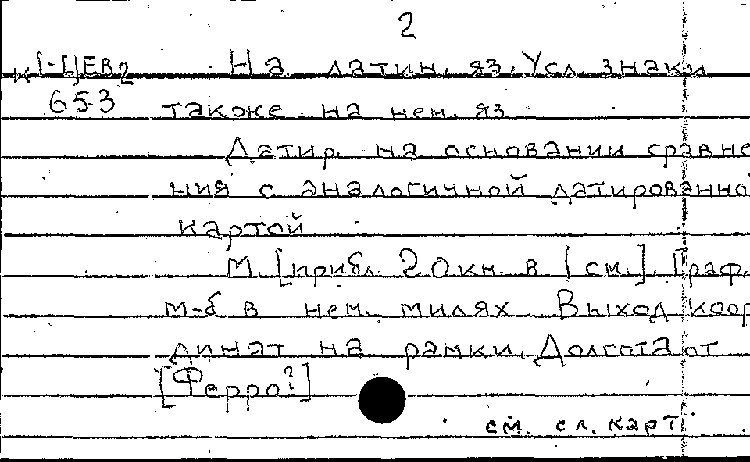 2
На латин. яз. Усл. знаки
653 также на нем. яз.
Датир. на основании сравне
ния с аналогичной датированно
картой
М. [прибл. 20 км. в 1 см.]. Граф.
м-б в нем. милях. Выход коор
динат на рамки. Долгота от
[Ферро?]
см. сл. карт.